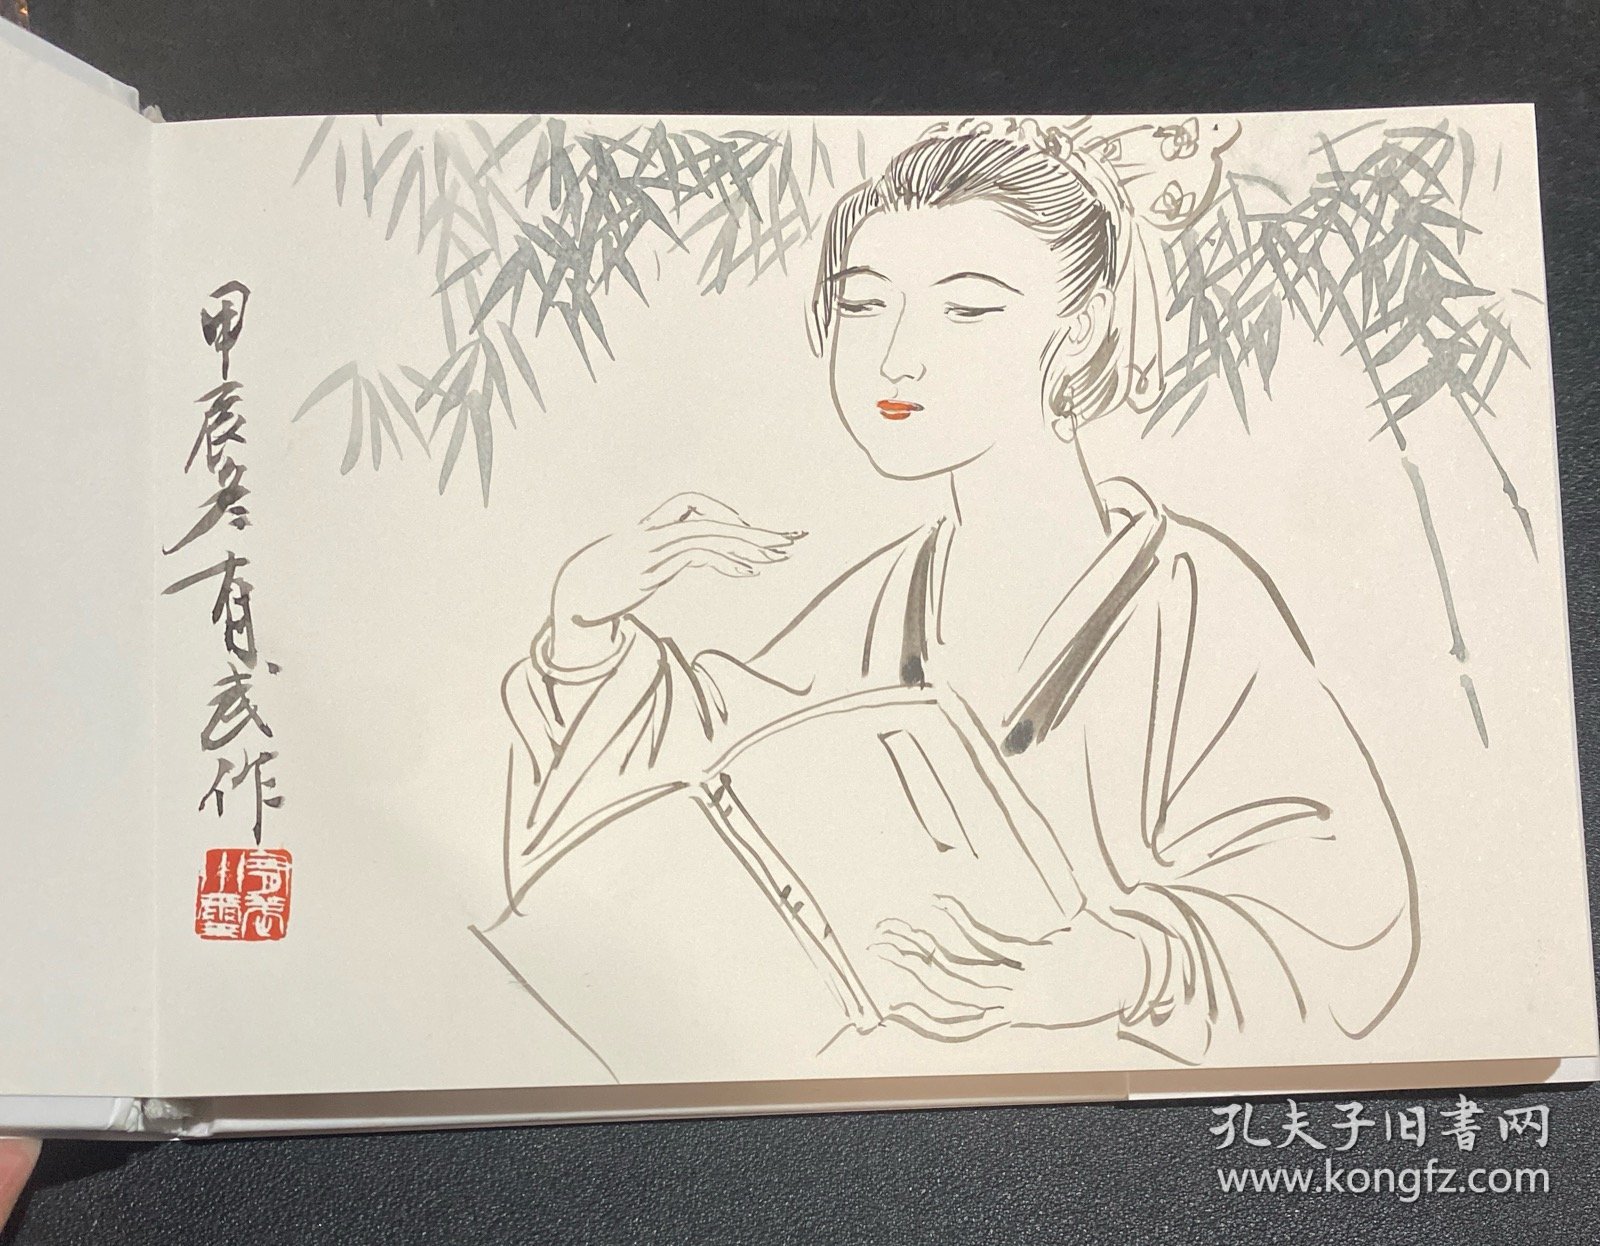 甲辰冬有武作
孔夫子旧书网
www.kongfz.com